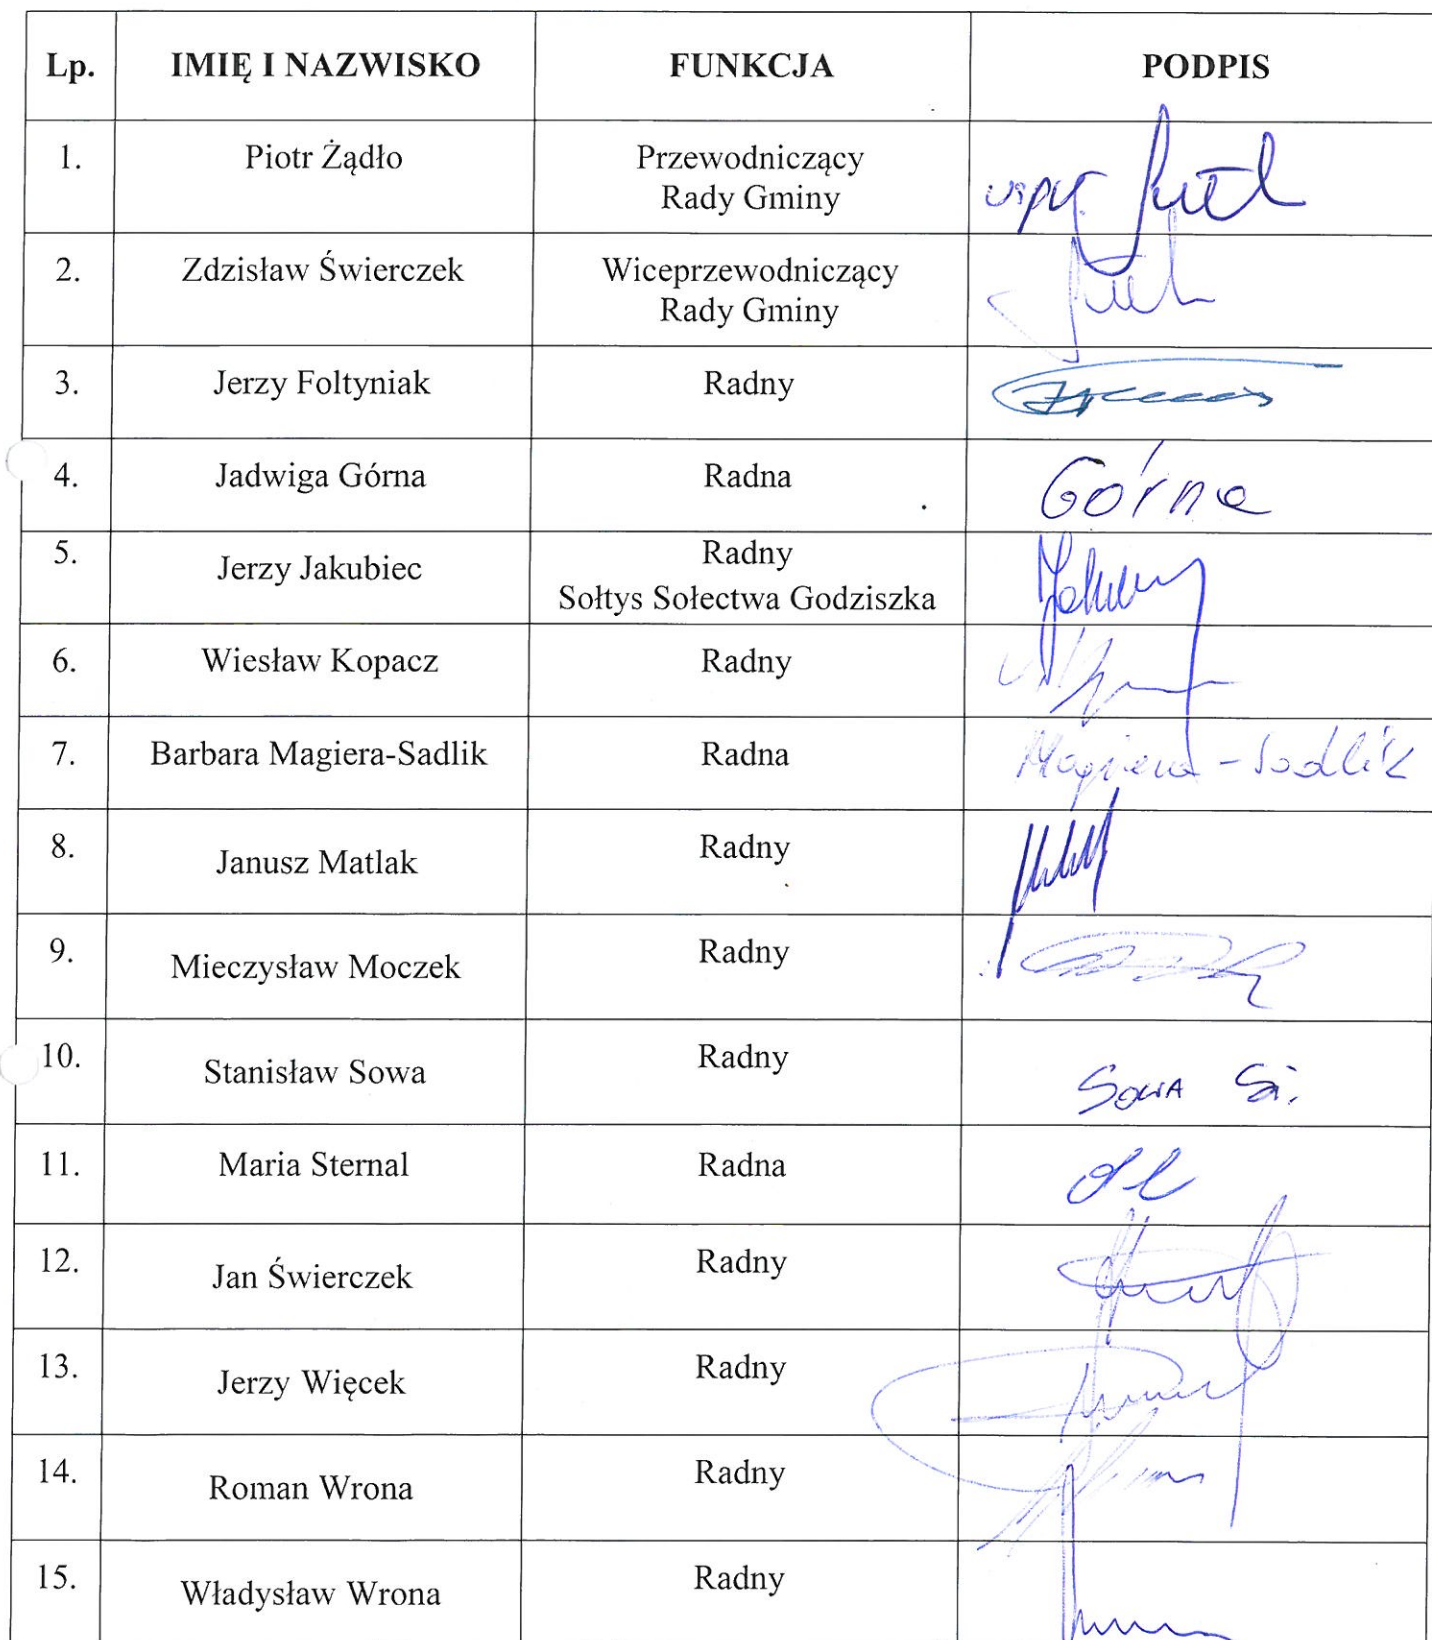 Lp. IMIĘ I NAZWISKO FUNKCJA PODPIS
1. Piotr Żądło Przewodniczący
Rady Gminy
2. Zdzisław Świerczek Wiceprzewodniczący
Rady Gminy
3. Jerzy Foltyniak Radny
4. Jadwiga Górna Radna Górna
5. Jerzy Jakubiec Radny
Sołtys Sołectwa Godziszka
6. Wiesław Kopacz Radny
7. Barbara Magiera-Sadlik Radna Magiera-Sadlik
8. Janusz Matlak Radny
9. Mieczysław Moczek Radny
10. Stanisław Sowa Radny Sowa
11. Maria Sternal Radna
12. Jan Świerczek Radny
13. Jerzy Więcek Radny
14. Roman Wrona Radny
15. Władysław Wrona Radny